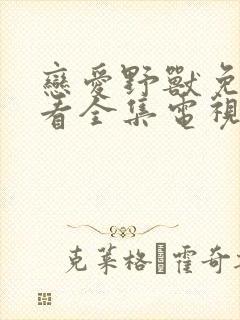 戀愛野獸免
看全集電視
克萊格·霍奇